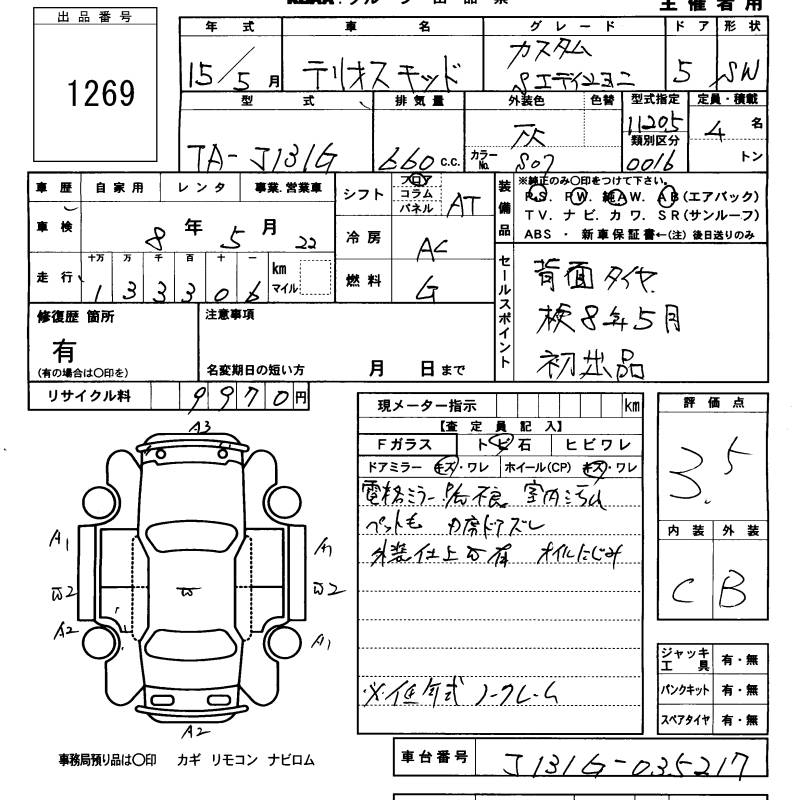 出品番号
1269
主催者用
年式 車名 グレード ドア 形状
15/5月 テリオスキッド カスタム Sエディション 5 SW
型式 排気量 外装色 色替 型式指定 定員・積載
TA-J131G 660 c.c. 灰 11205 4 名
カラーNo. S07 類別区分 0016 トン
車歴 自家用 レンタ 事業.営業車
シフト フロア コラム パネル AT
装備品 ※純正のみ〇印をつけて下さい。
P.S. P.W. 純A.W. AB(エアバック)
T V. ナビ. カワ. SR(サンルーフ)
ABS ・ 新車保証書←(注)後日送りのみ
車検 8年5月22
冷房 AC
走行 十万 万 千 百 十 一 km マイル
133306
燃料 G
セールスポイント
背面タイヤ
検8年5月
初出品
修復歴 箇所
有
(有の場合は〇印を)
注意事項
名変期日の短い方 月 日まで
リサイクル料 9970円
現メーター指示 km
【査定員記入】
Fガラス トビ石 ヒビワレ
ドアミラー キズ・ワレ ホイール(CP) キズ・ワレ
電格ミラー 不良 室内汚れ
ペット毛 ドアズレ
外装仕上 オイルにじみ
ノークレーム
評価点
3.5
内装 外装
C B
A3
A1 A1
W2 W W2
A2 A1
A2
ジャッキ工具 有・無
パンクキット 有・無
スペアタイヤ 有・無
事務局預り品は〇印 カギ リモコン ナビロム
車台番号 J131G-035217